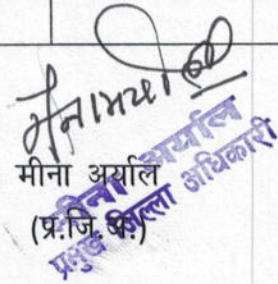 मीना अर्याल
(प्र.जि.अ.)
मीना अर्याल
प्रमुख जिल्ला अधिकारी